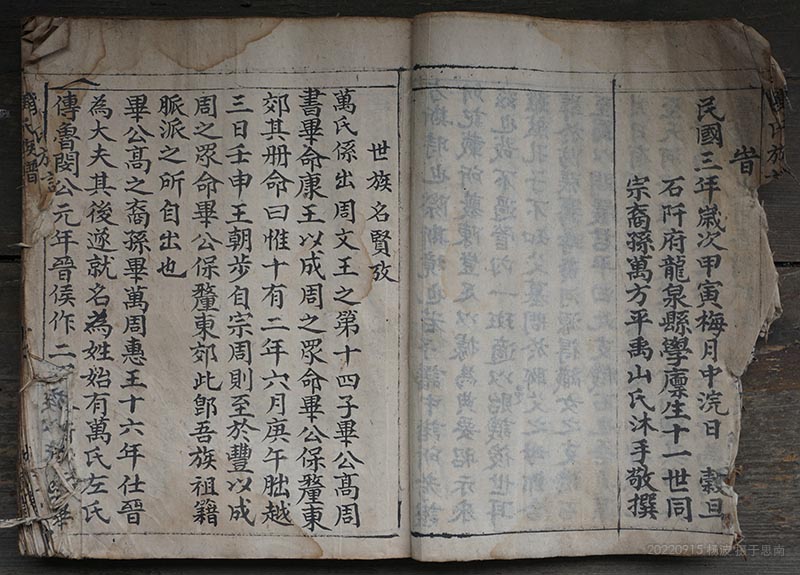 旹
民國三年歲次甲寅梅月中浣日 穀旦
石阡府龍泉縣學廩生十一世同
宗裔孫萬方平禹山氏沐手敬撰
世族名賢攷
萬氏係出周文王之第十四子畢公高周
書畢命康王以成周之眾命畢公保釐東
郊其册命曰惟十有二年六月庚午朏越
三日壬申王朝步自宗周則至於豐以成
周之眾命畢公保釐東郊此郎吾族祖籍
脈派之所自出也
畢公高之裔孫畢萬周惠王十六年仕晉
為大夫其後遂就名為姓始有萬氏左氏
傳魯閔公元年晉侯作二
20220915 摄于思南